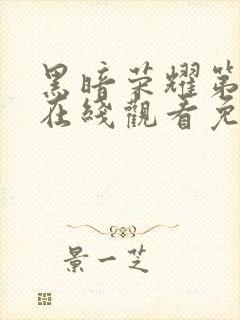 黑暗荣耀第
在线觀看免
景一芝